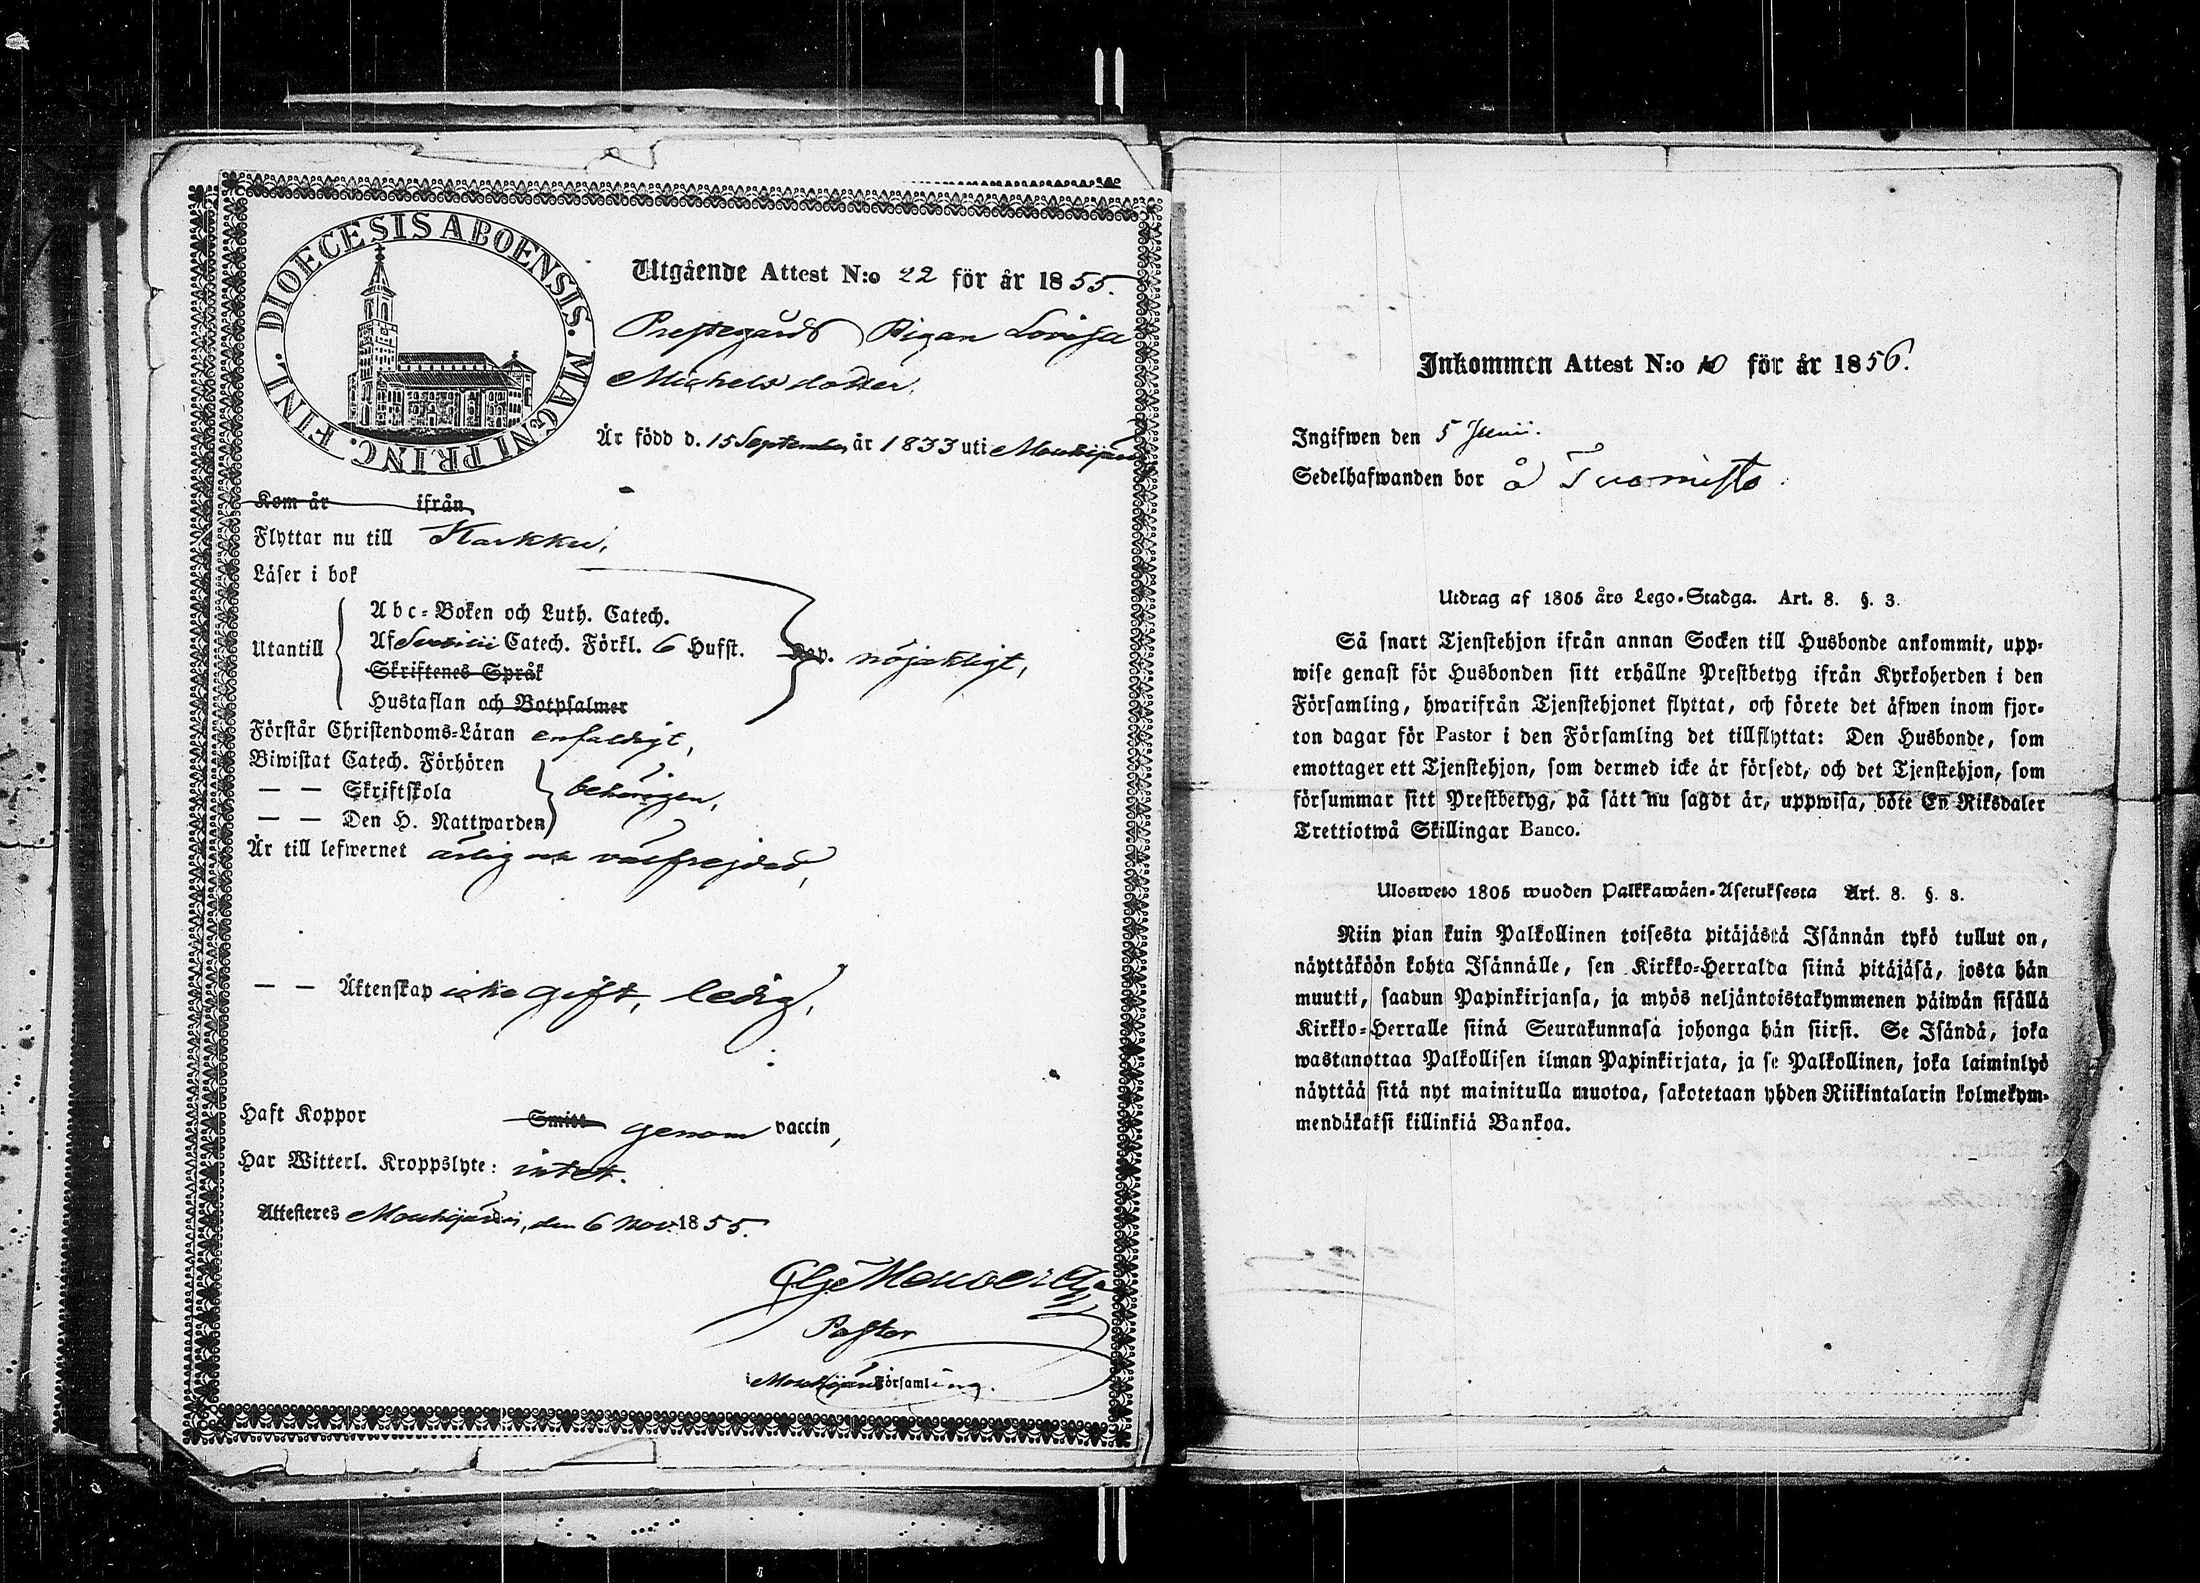 DIOECESIS ABOENSIS. MAGNI PRINC. FINL.
Utgående Attest N:o 22 för år 1855.
Prestegårds Pigan Lovisa
Michelsdotter.
Är född d. 15 September år 1833 uti Mouhijärvi
Kom år ifrån
Flyttar nu till Karkku,
Läser i bok
Utantill
Abc-Boken och Luth. Catech.
Af Svebilii Catech. Förkl. 6 Hufst. Kap. nöjaktigt,
Skriftenes Språk
Hustaflan och Botpsalmer
Förstår Christendoms-Läran enfaldigt,
Biwistat Catech. Förhören
— — Skriftskola behörigen,
— — Den H. Nattwarden
Är till lefwernet ärlig och välfrejdad,
— — Äktenskap icke gift, ledig,
Haft Koppor Smitt genom vaccin,
Har Witterl. Kroppslyte: intet.
Attesteres Mouhijärvi, den 6 Nov. 1855.
Pastor
i Mouhijärvi Församling.
Inkommen Attest N:o 10 för år 1856.
Ingifwen den 5 Junii.
Sedelhafwanden bor å Tuomisto.
Utdrag af 1805 års Lego-Stadga. Art. 8. §. 3.
Så snart Tjenstehjon ifrån annan Socken till Husbonde ankommit, upp-
wise genast för Husbonden sitt erhållne Prestbetyg ifrån Kyrkoherden i den
Församling, hwarifrån Tjenstehjonet flyttat, och förete det äfwen inom fjor-
ton dagar för Pastor i den Församling det tillflyttat: Den Husbonde, som
emottager ett Tjenstehjon, som dermed icke är försedt, och det Tjenstehjon, som
försummar sitt Prestbetyg, på sätt nu sagdt är, uppwisa, böte En Riksdaler
Trettiotwå Skillingar Banco.
Ulosweto 1805 wuoden Palkkawäen-Asetuksesta Art. 8. §. 3.
Niin pian kuin Palkollinen toisesta pitäjästä Isännän tykö tullut on,
näyttäköön kohta Isännälle, sen Kirkko-Herralda siinä pitäjäsä, josta hän
muutti, saadun Papinkirjansa, ja myös neljäntoistakymmenen päiwän sisällä
Kirkko-Herralle siinä Seurakunnasa johonga hän siirsi. Se Isändä, joka
wastanottaa Palkollisen ilman Papinkirjata, ja se Palkollinen, joka laiminlyö
näyttää sitä nyt mainitulla muotoa, sakotetaan yhden Riikintalarin kolmekym-
mendäkaksi killinkiä Bankoa.